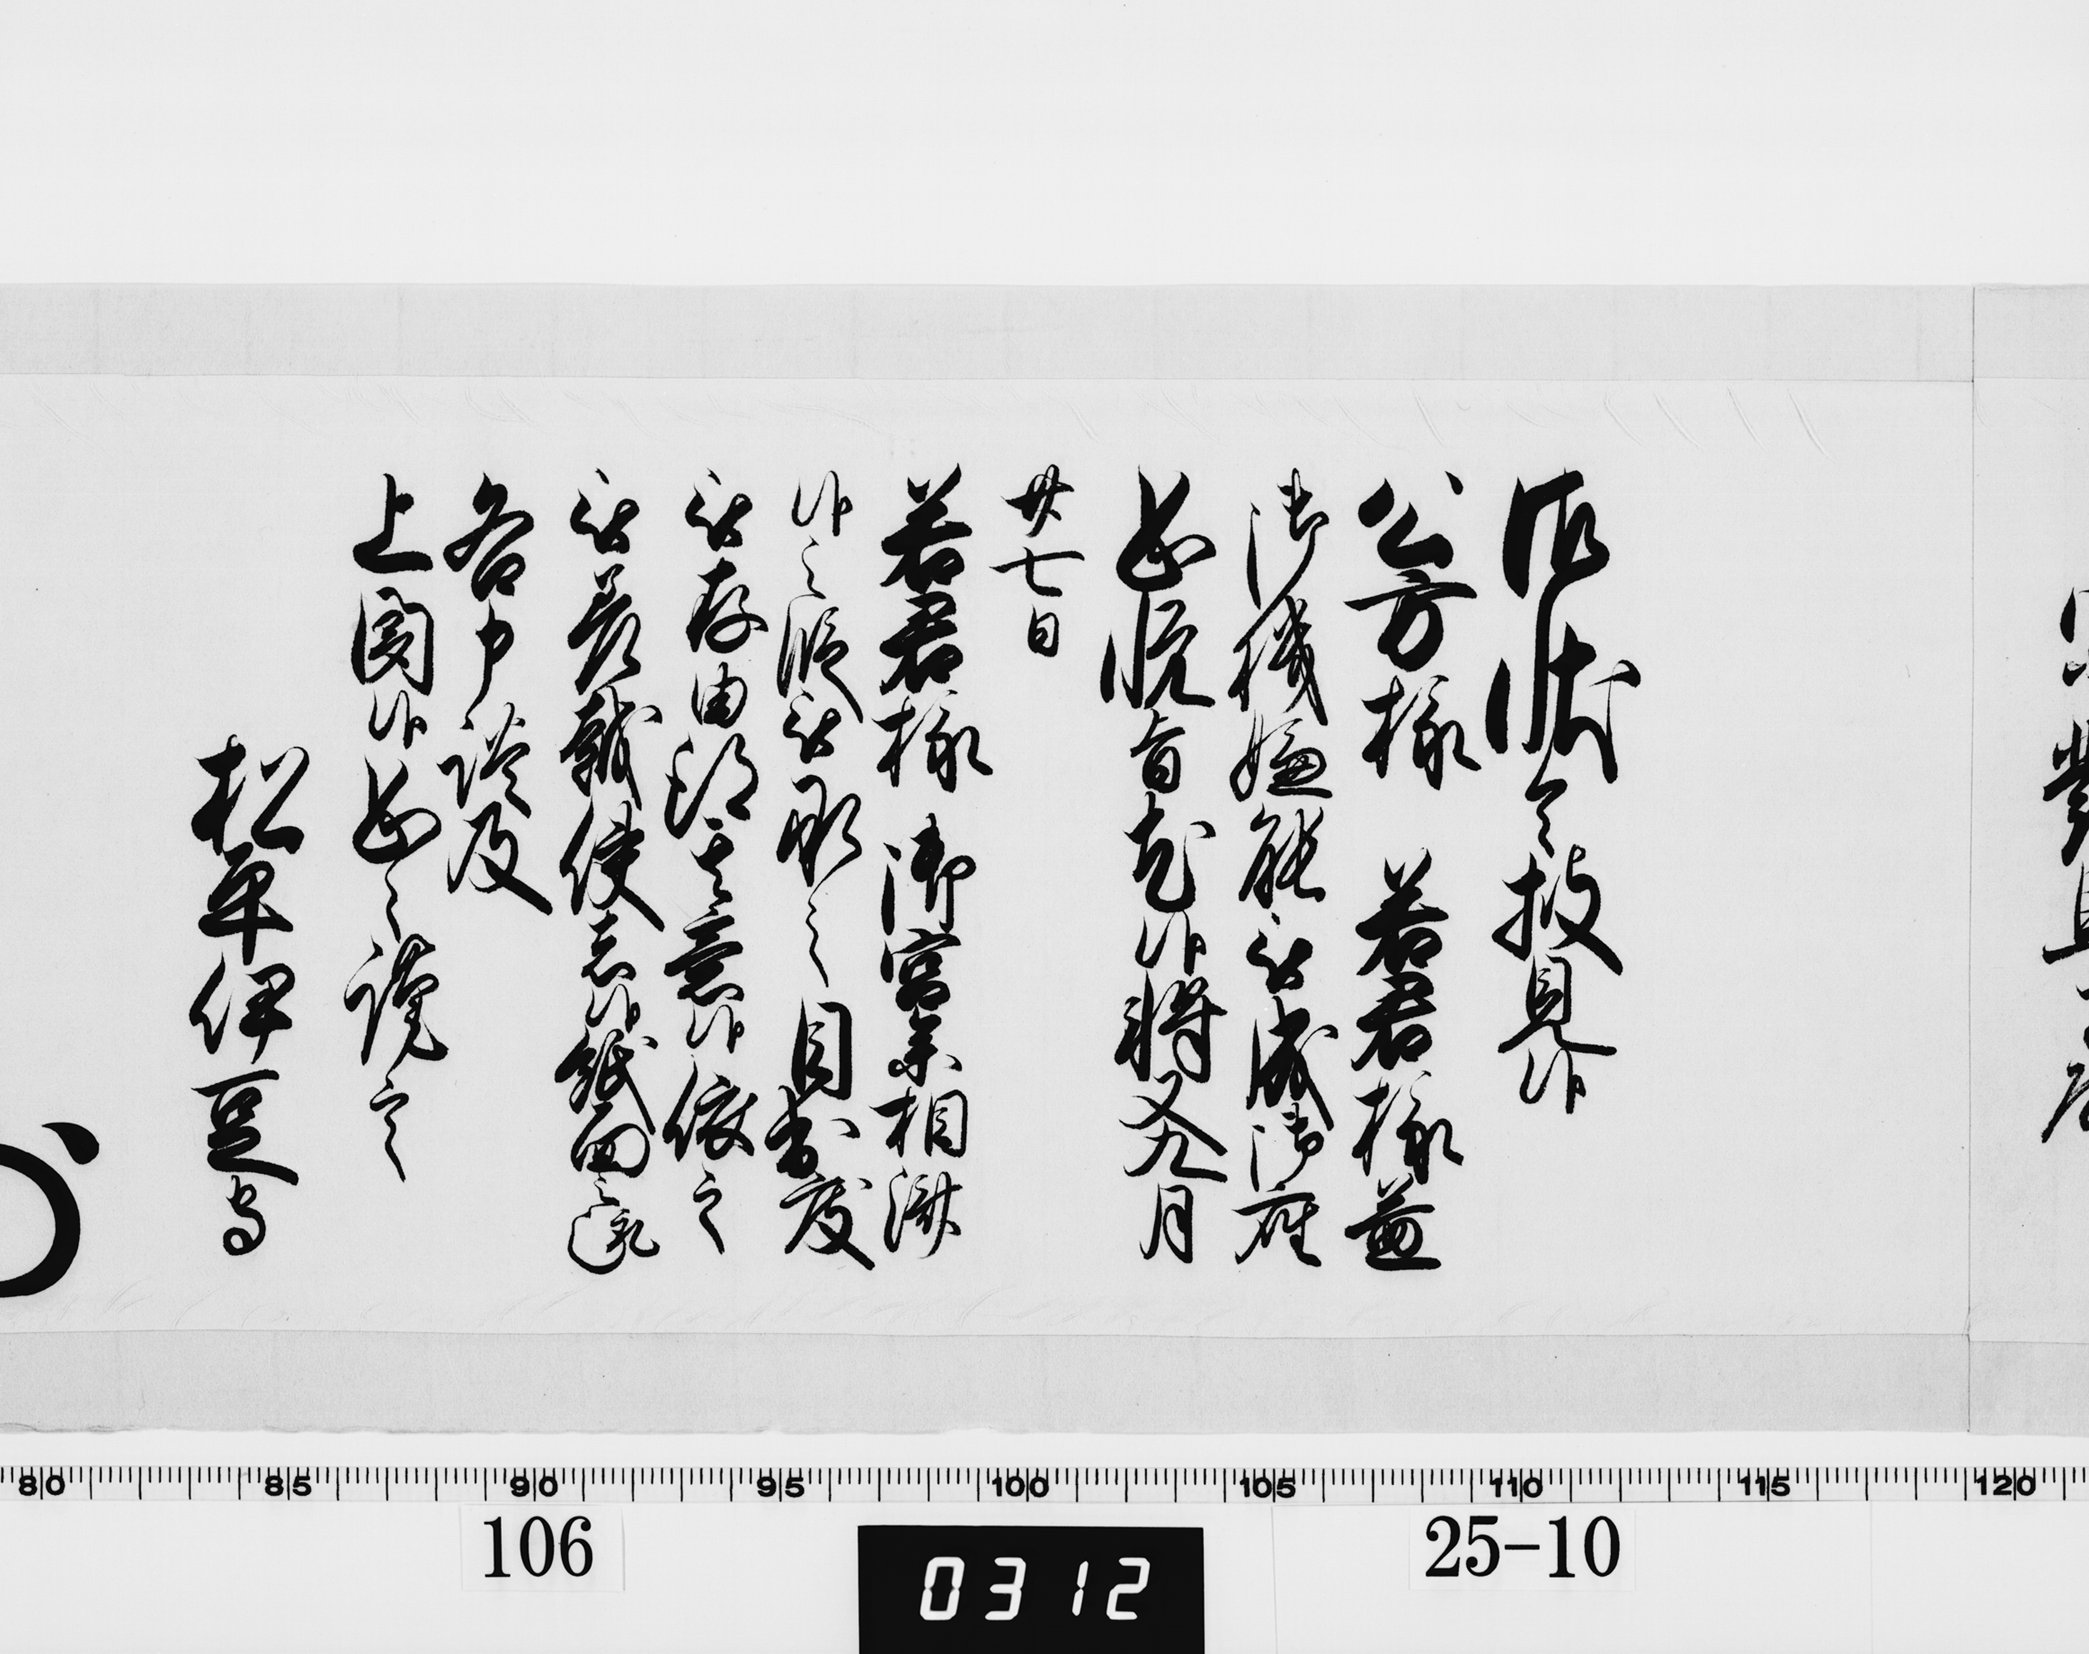 御状令披見候
公方様 若君様益
御機嫌能被成御座
恐悦旨尤候将又九月
廿七日
若君様 御宮参相済
候之段被承之目出度
被存由得其意候依之
被差越使者候紙面之趣
各申談及
上聞候恐々謹言
松平伊豆守
80 85 90 95 100 105 110 115 120
106
25-10
0312